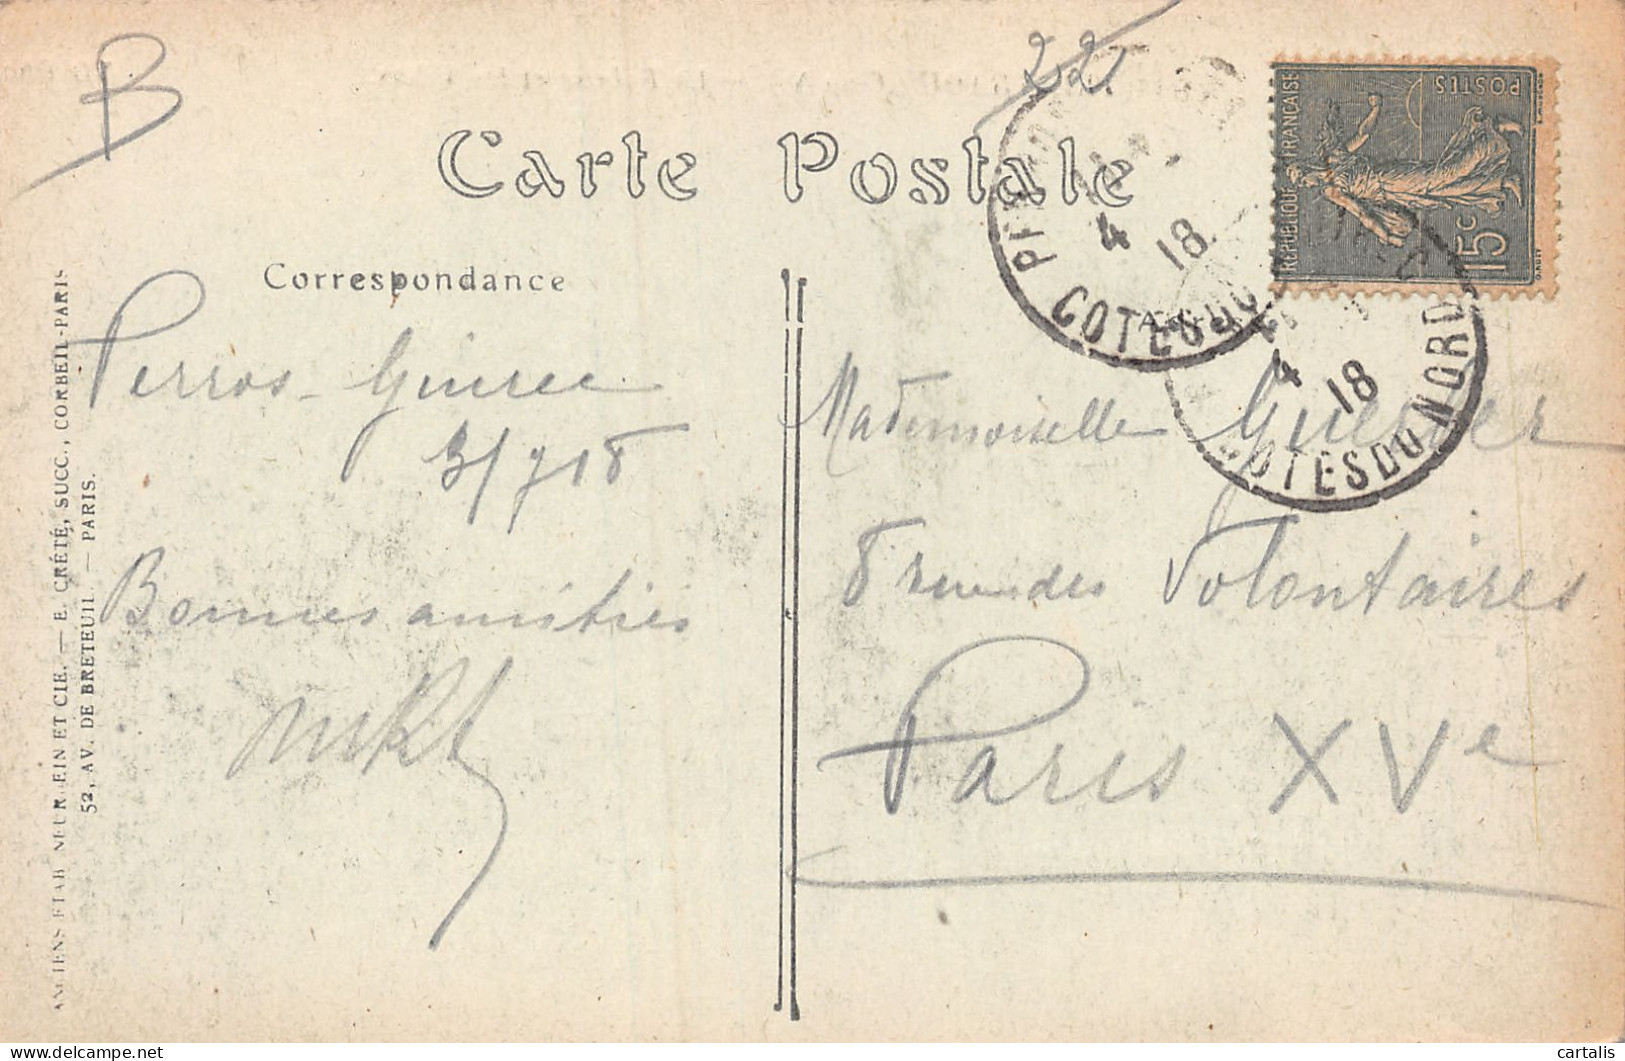 B
22
Carte Postale
Correspondance
Perros-Guirec
3/718
Bonnes amitiés
ANCIENS ETAB. NEURDEIN ET CIE. — E. CRÉTÉ, SUCC., CORBEIL-PARIS
52, AV. DE BRETEUIL. — PARIS.
RÉPUBLIQUE FRANÇAISE
POSTES
15c
4 18
COTES DU NORD
4 18
COTES DU NORD
Mademoiselle
8 rue des Volontaires
Paris XVe
cartalis